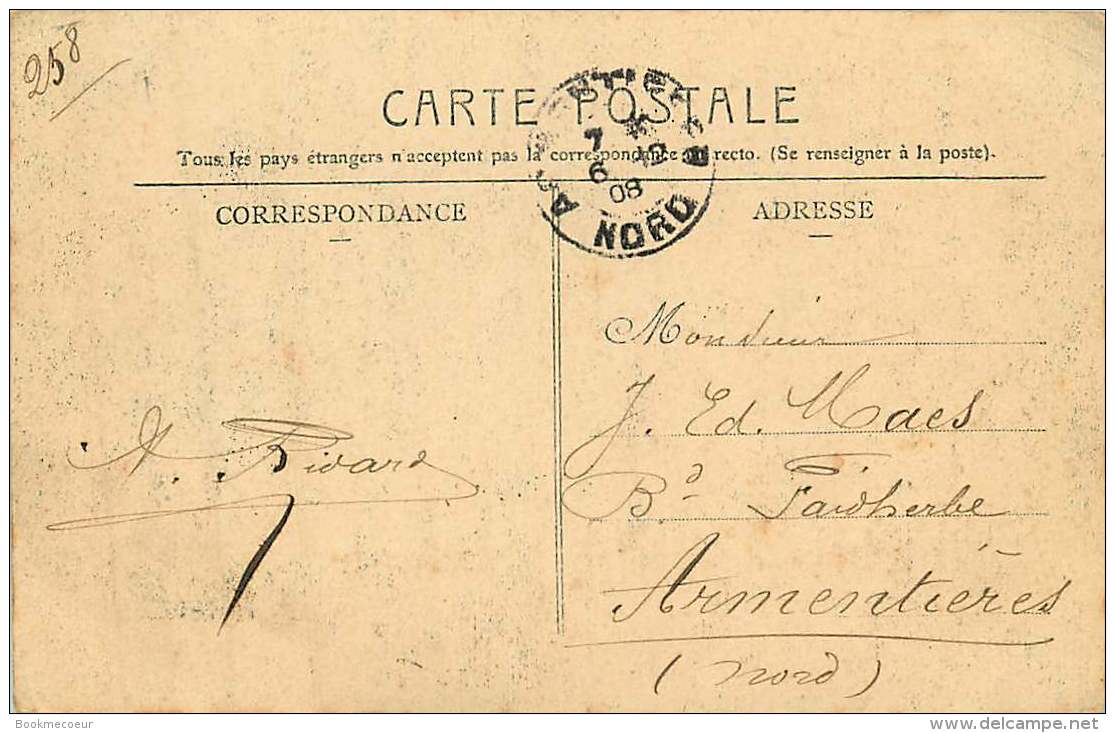 258
CARTE POSTALE
Tous les pays étrangers n'acceptent pas la correspondance au recto. (Se renseigner à la poste).
7
6
08
NORD
CORRESPONDANCE
ADRESSE
Monsieur
J. Ed. Maes
Bd Faidherbe
Armentières
(Nord)
A. Rivard
Bookmecoeur
delcampe.net